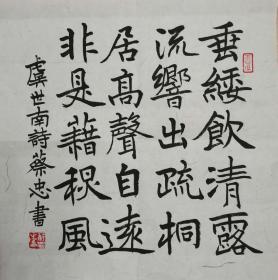 垂緌飲清露
流響出疏桐
居高聲自遠
非是藉秋風
虞世南詩蔡忠書